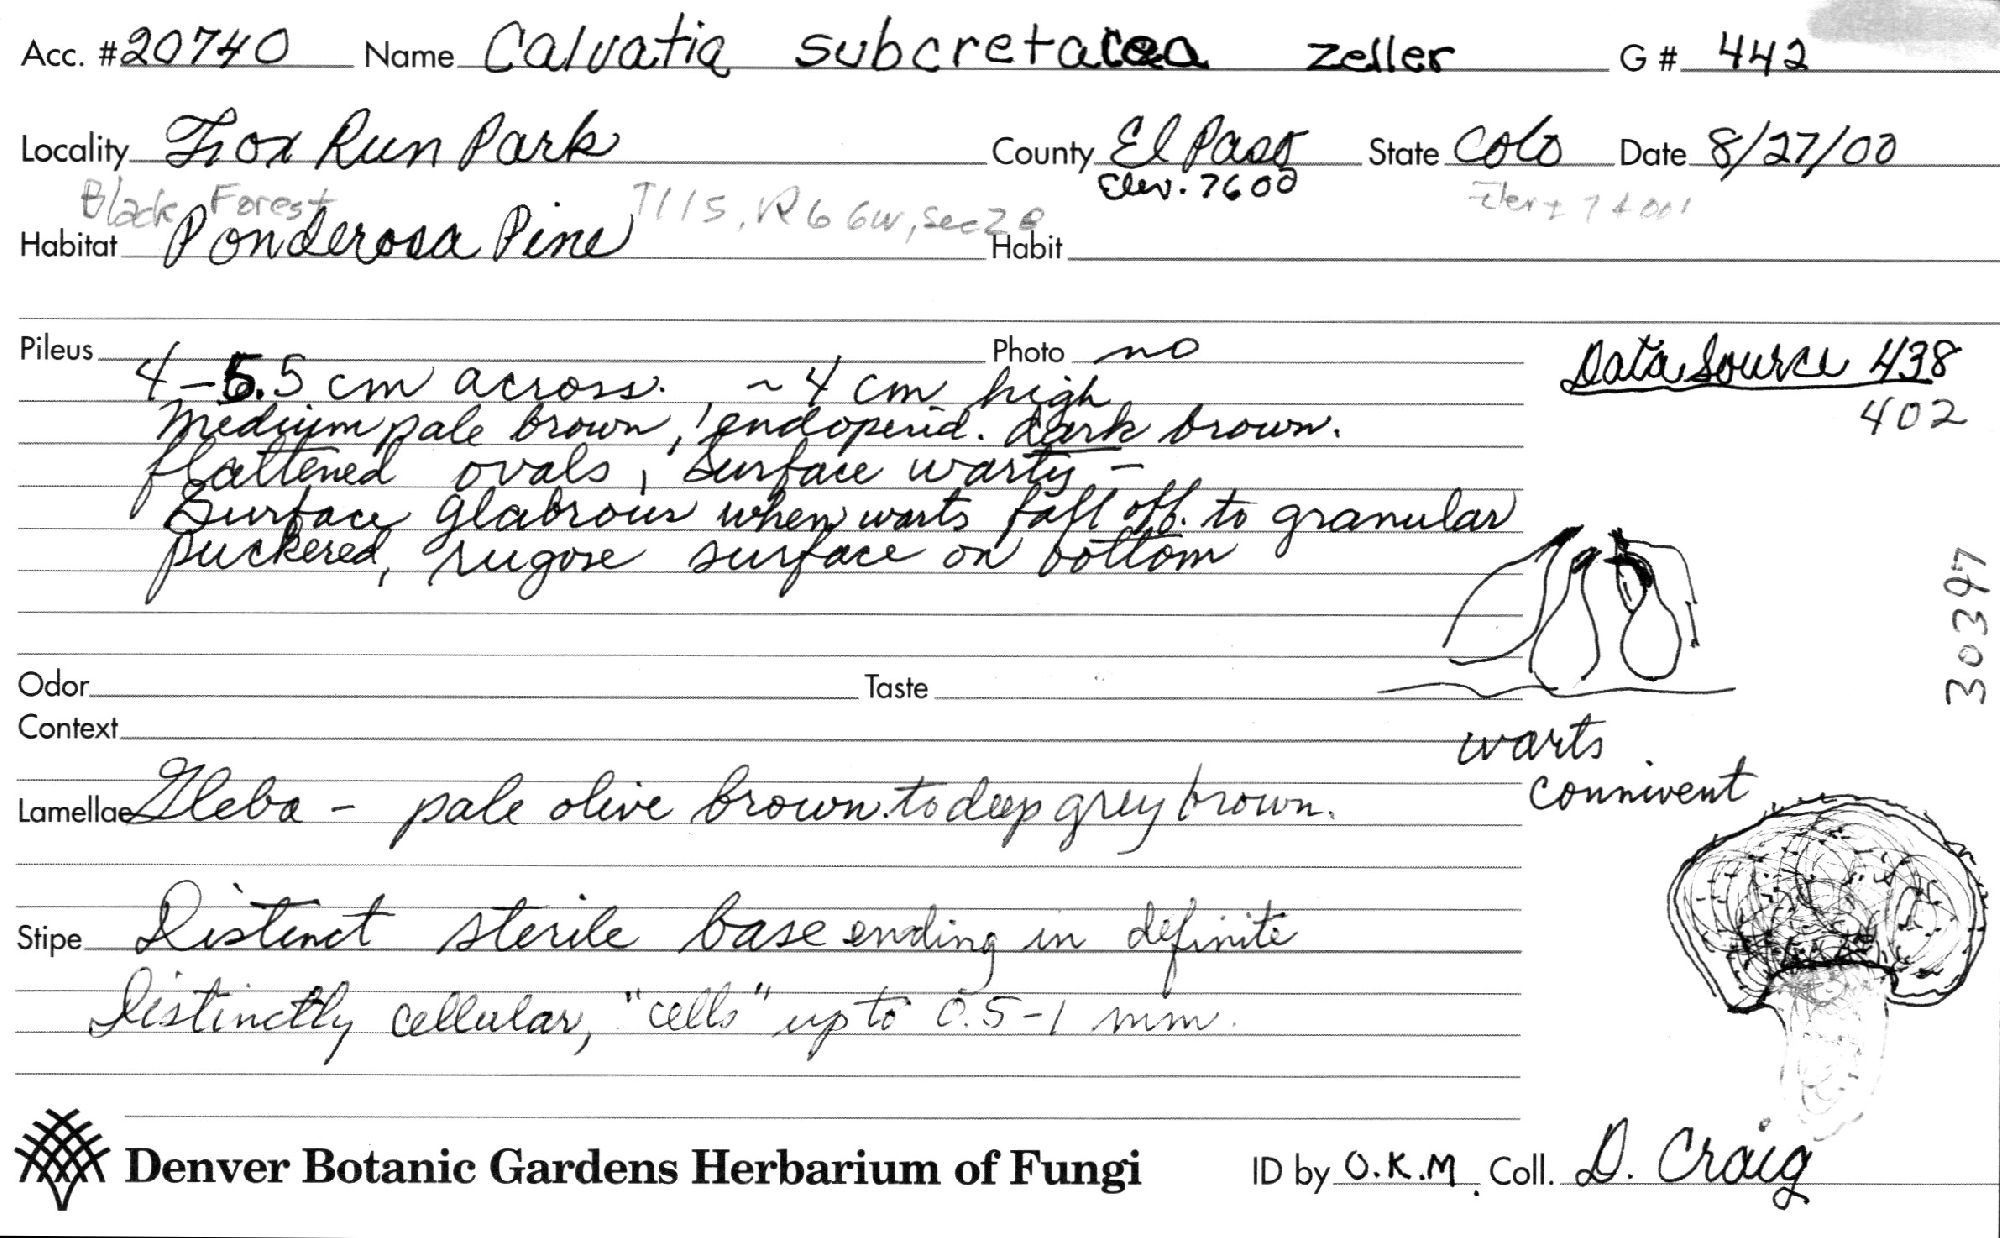 Acc. #20740 Name Calvatia subcretacea Zeller G# 442
Locality Fox Run Park County El Paso State Colo Date 8/27/00
Black Forest T11S, R66W, Sec 28 Elev. 7600
Habitat Ponderosa Pine Habit
Pileus Photo no
4-5.5 cm across. ~4 cm high
Data Source 438
402
Medium pale brown, endoperid. dark brown.
flattened ovals, surface warty -
Surface glabrous when warts fall off. to granular
puckered, rugose surface on bottom
30397
Odor Taste
Context
warts
connivent
Lamellae Gleba - pale olive brown. to deep grey brown.
Stipe Distinct sterile base ending in definite
Distinctly cellular, "cells" up to 0.5-1 mm.
Denver Botanic Gardens Herbarium of Fungi ID by O.K.M. Coll. D. Craig